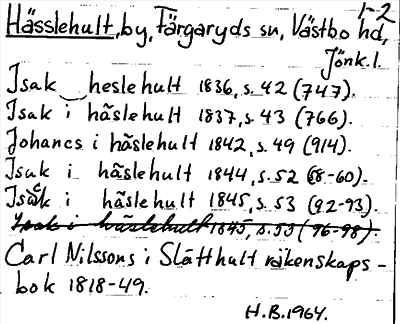 1-2
Hässlehult, by, Färgaryds sn, Västbo hd,
Jönk. l.
Isak heslehult 1836, s. 42 (747).
Isak i hãslehult 1837, s. 43 (766).
Johanes i hãslehult 1842, s. 49 (914).
Isak i hãslehult 1844, s. 52 (58-60).
Isack i hãslehult 1845, s. 53 (92-93).
Isak i häslehult 1845, s. 53 (96-98).
Carl Nilssons i Slätthult räkenskaps-
bok 1818-49.
H.B. 1964.